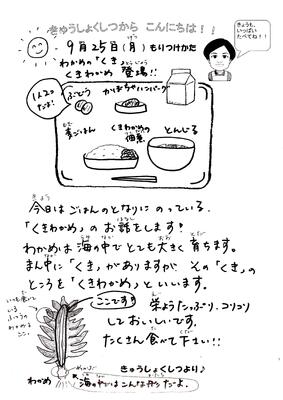 きゅうしょくしつから こんにちは！！
きょうも、
いっぱい
たべてね！！
9月25日(月) もりつけかた
わかめの「くき」
くきわかめ 登場!!
1人2つ
だよ!
ぶどう
かぼちゃハンバーグ
麦ごはん
くきわかめの
佃煮
とんじる
今日はごはんのとなりにのっている、
「くきわかめ」のお話をします！
わかめは海の中でとても大きく育ちます。
まん中に「くき」がありますが、その「くき」の
ところを「くきわかめ」といいます。
ここです!
いつも食べて
いる
ふつうの
わかめは
ここ。
栄ようたっぷり、コリコリ
しておいしいです。
たくさん食べて下さい!!
めかぶ
きゅうしょくしつより♪
わかめ
海の中ではこんな形だよ。